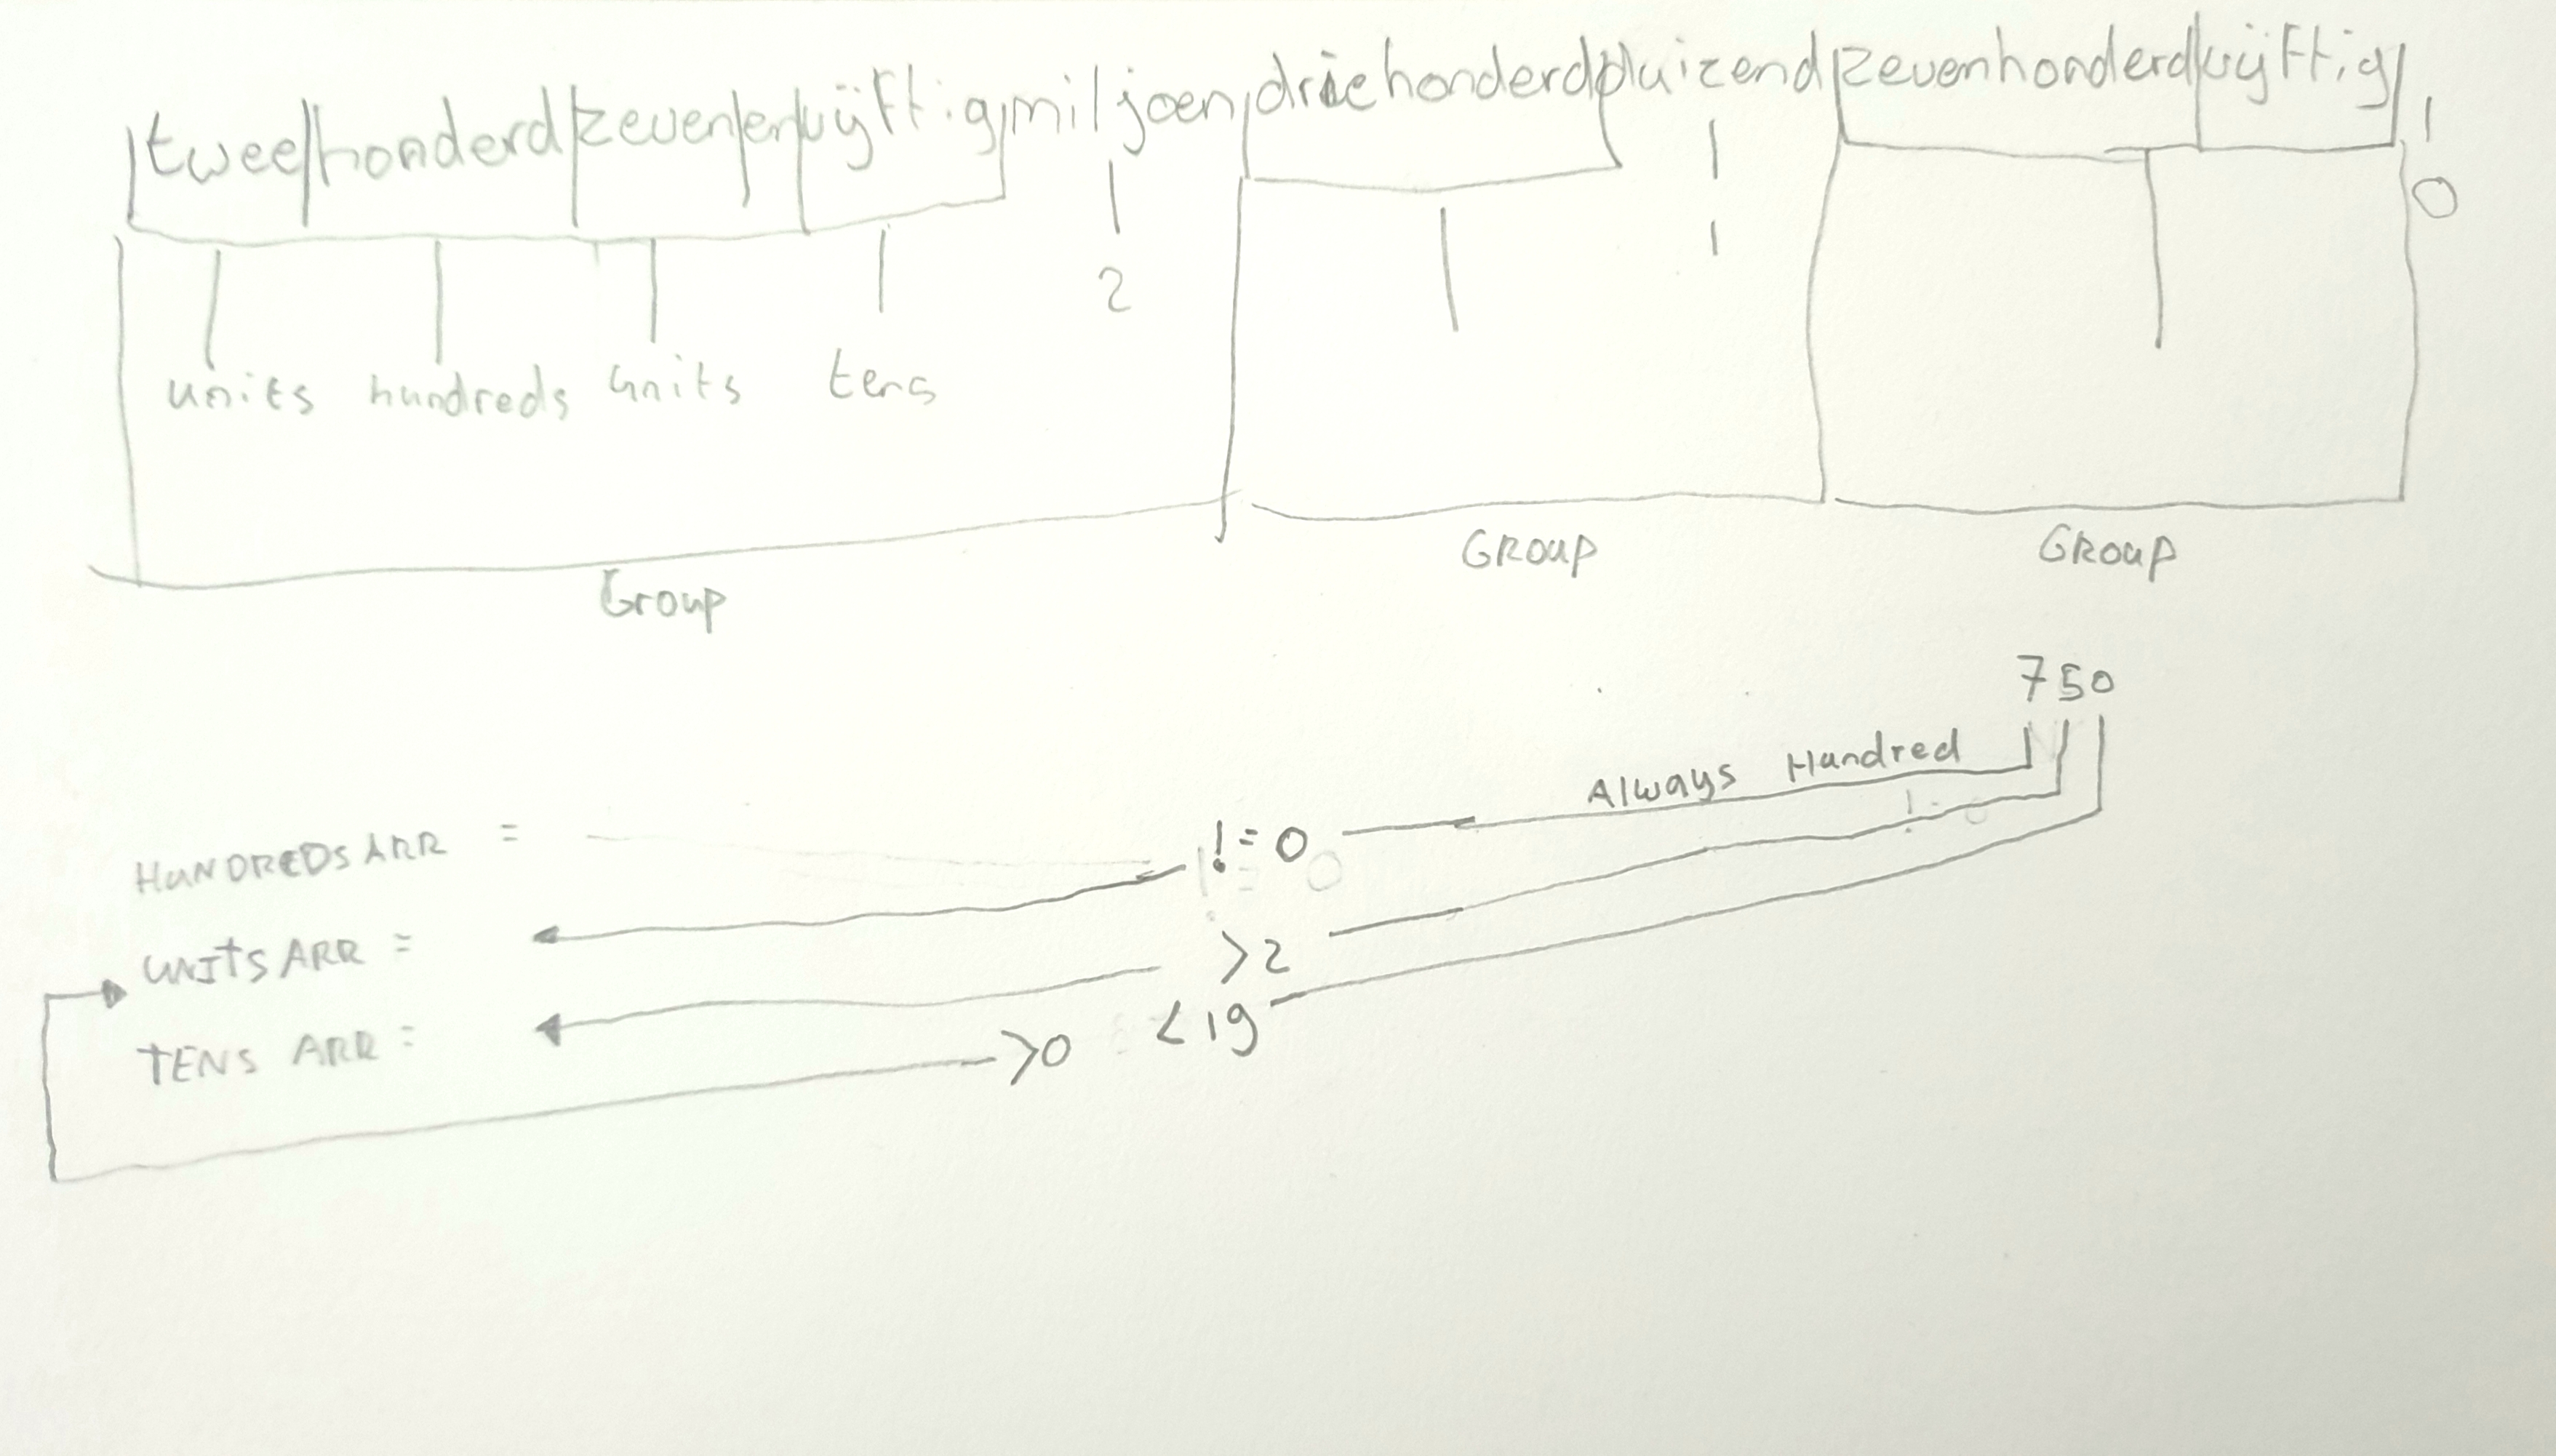 tweehonderdzevenenvijftigmiljoendriehonderdduizendzevenhonderdvijftig
2 1 0
units hundreds units tens
Group GROUP GROUP
750
Always Hundred
HUNDREDS ARR = != 0
UNITS ARR = >2
TENS ARR = >0 <19